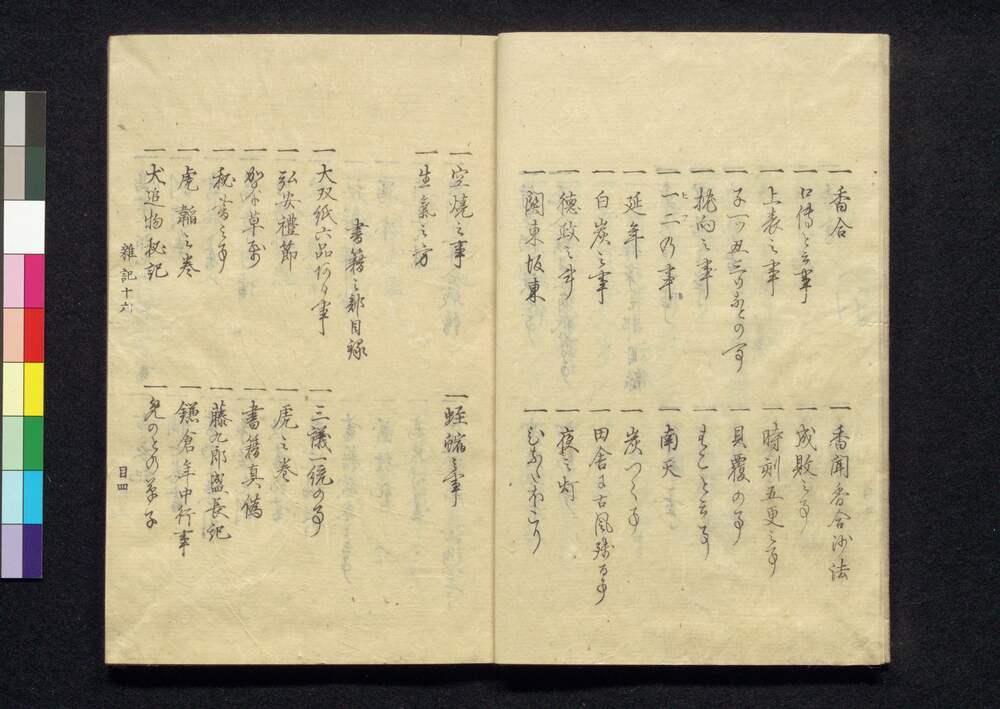 一 香合
一 香聞香合沙法
一 口傳と云事
一 成敗之事
一 上表之事
一 時刻五更之事
一 子一つ丑三つなどの事
一 貝覆の事
一 挑向之事
一 と云事
一 一二の事
一 南天
一 延年
一 炭つく事
一 白炭之事
一 田舎に古風残る事
一 徳政之事
一 夜之灯
一 関東坂東
一 むなたかほこり
一 空焼之事
一 蛭蟾之事
一 生氣之方
書籍之部目録
一 大双紙六品阿り事
一 三議一統の事
一 弘安禮節
一 虎之巻
一 草
一 書籍真偽
一 秘書之事
一 藤九郎盛長記
一 虎韜之巻
一 鎌倉年中行事
一 犬追物秘記
一 児のとの草子
雑記十六
目四